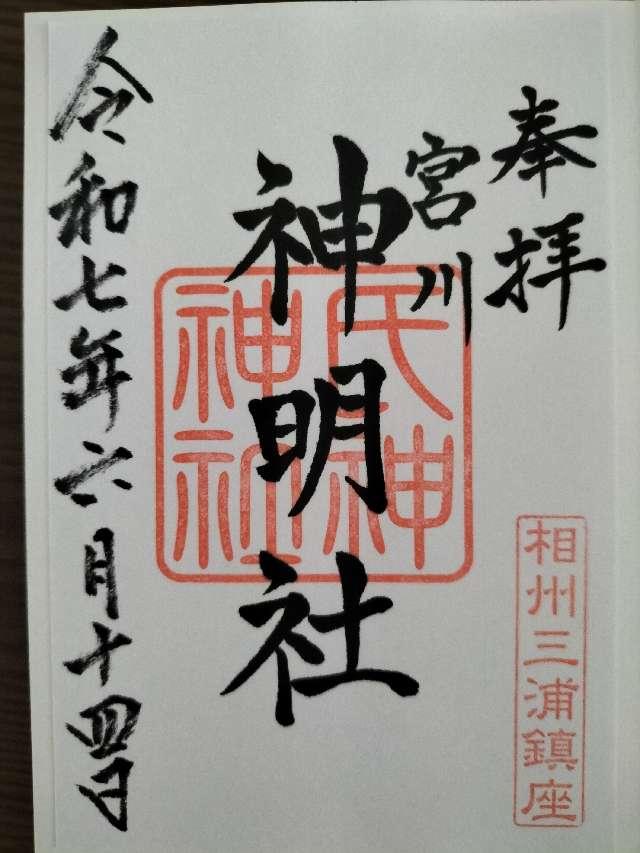 奉拝
宮川
神明社
氏神
神社
相州三浦鎮座
令和七年六月十四日